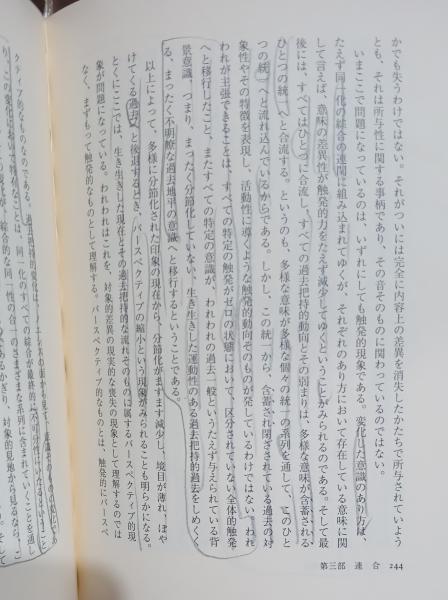 244　第三部　連合
かでも失うわけではない。それがついには完全に内容上の差異を消失したかたちで所与されていようとも、それは所与性に関する事柄であり、その音そのものに関わっているのではない。
いまここで問題になっているのは、いずれにしても触発的現象である。変化した意識のあり方は、
たえず同一化の綜合の連関に組み込まれてゆくが、それぞれのあり方において存在している意味に関
して言えば、意味の差異性が触発的力をたえず減少してゆくということがみられるのである。そして最
後には、すべてはひとつに合流し、すべての過去把持的動向とその弱まりは、多様な意味が含蓄される
ひとつの統一へと合流する。というのも、多様な意味が多様な個々の統一の系列を通して、このひと
つの統一へと流れ込んでいるからである。しかし、この統一から、含蓄され閉ざされている過去の対
象性やその特徴を表現し、活動性に導くような触発的動向そのものが発しているわけではない。われ
われが主張できることは、すべての特定の触発がゼロの状態において、区分されていない全体的触発
へと移行したこと、またすべての特定の意識が、われわれの過去一般というたえず与えられている背
景意識、つまり、まったく分節化していない、生き生きした運動性のある過去把持的過去をしめくく
る、まったく不明瞭な過去地平の意識へと移行するということである。
以上によって、多様に分節化された印象の現在から、分節化がますます減少し、境目が薄れ、ぼや
けてくる過去へと後退するとき、パースペクティブの縮小という現象がみられることも明らかになる。
とくにここでは、生き生きした現在とその過去把持的な流れそのものに属するパースペクティブ的現
象が問題になっている。われわれはこれを、対象的差異の現実的な喪失の現象として理解するのでは
なく、まずもって触発的なものとして理解する。パースペクティブ的なものとは、触発的にパースペ